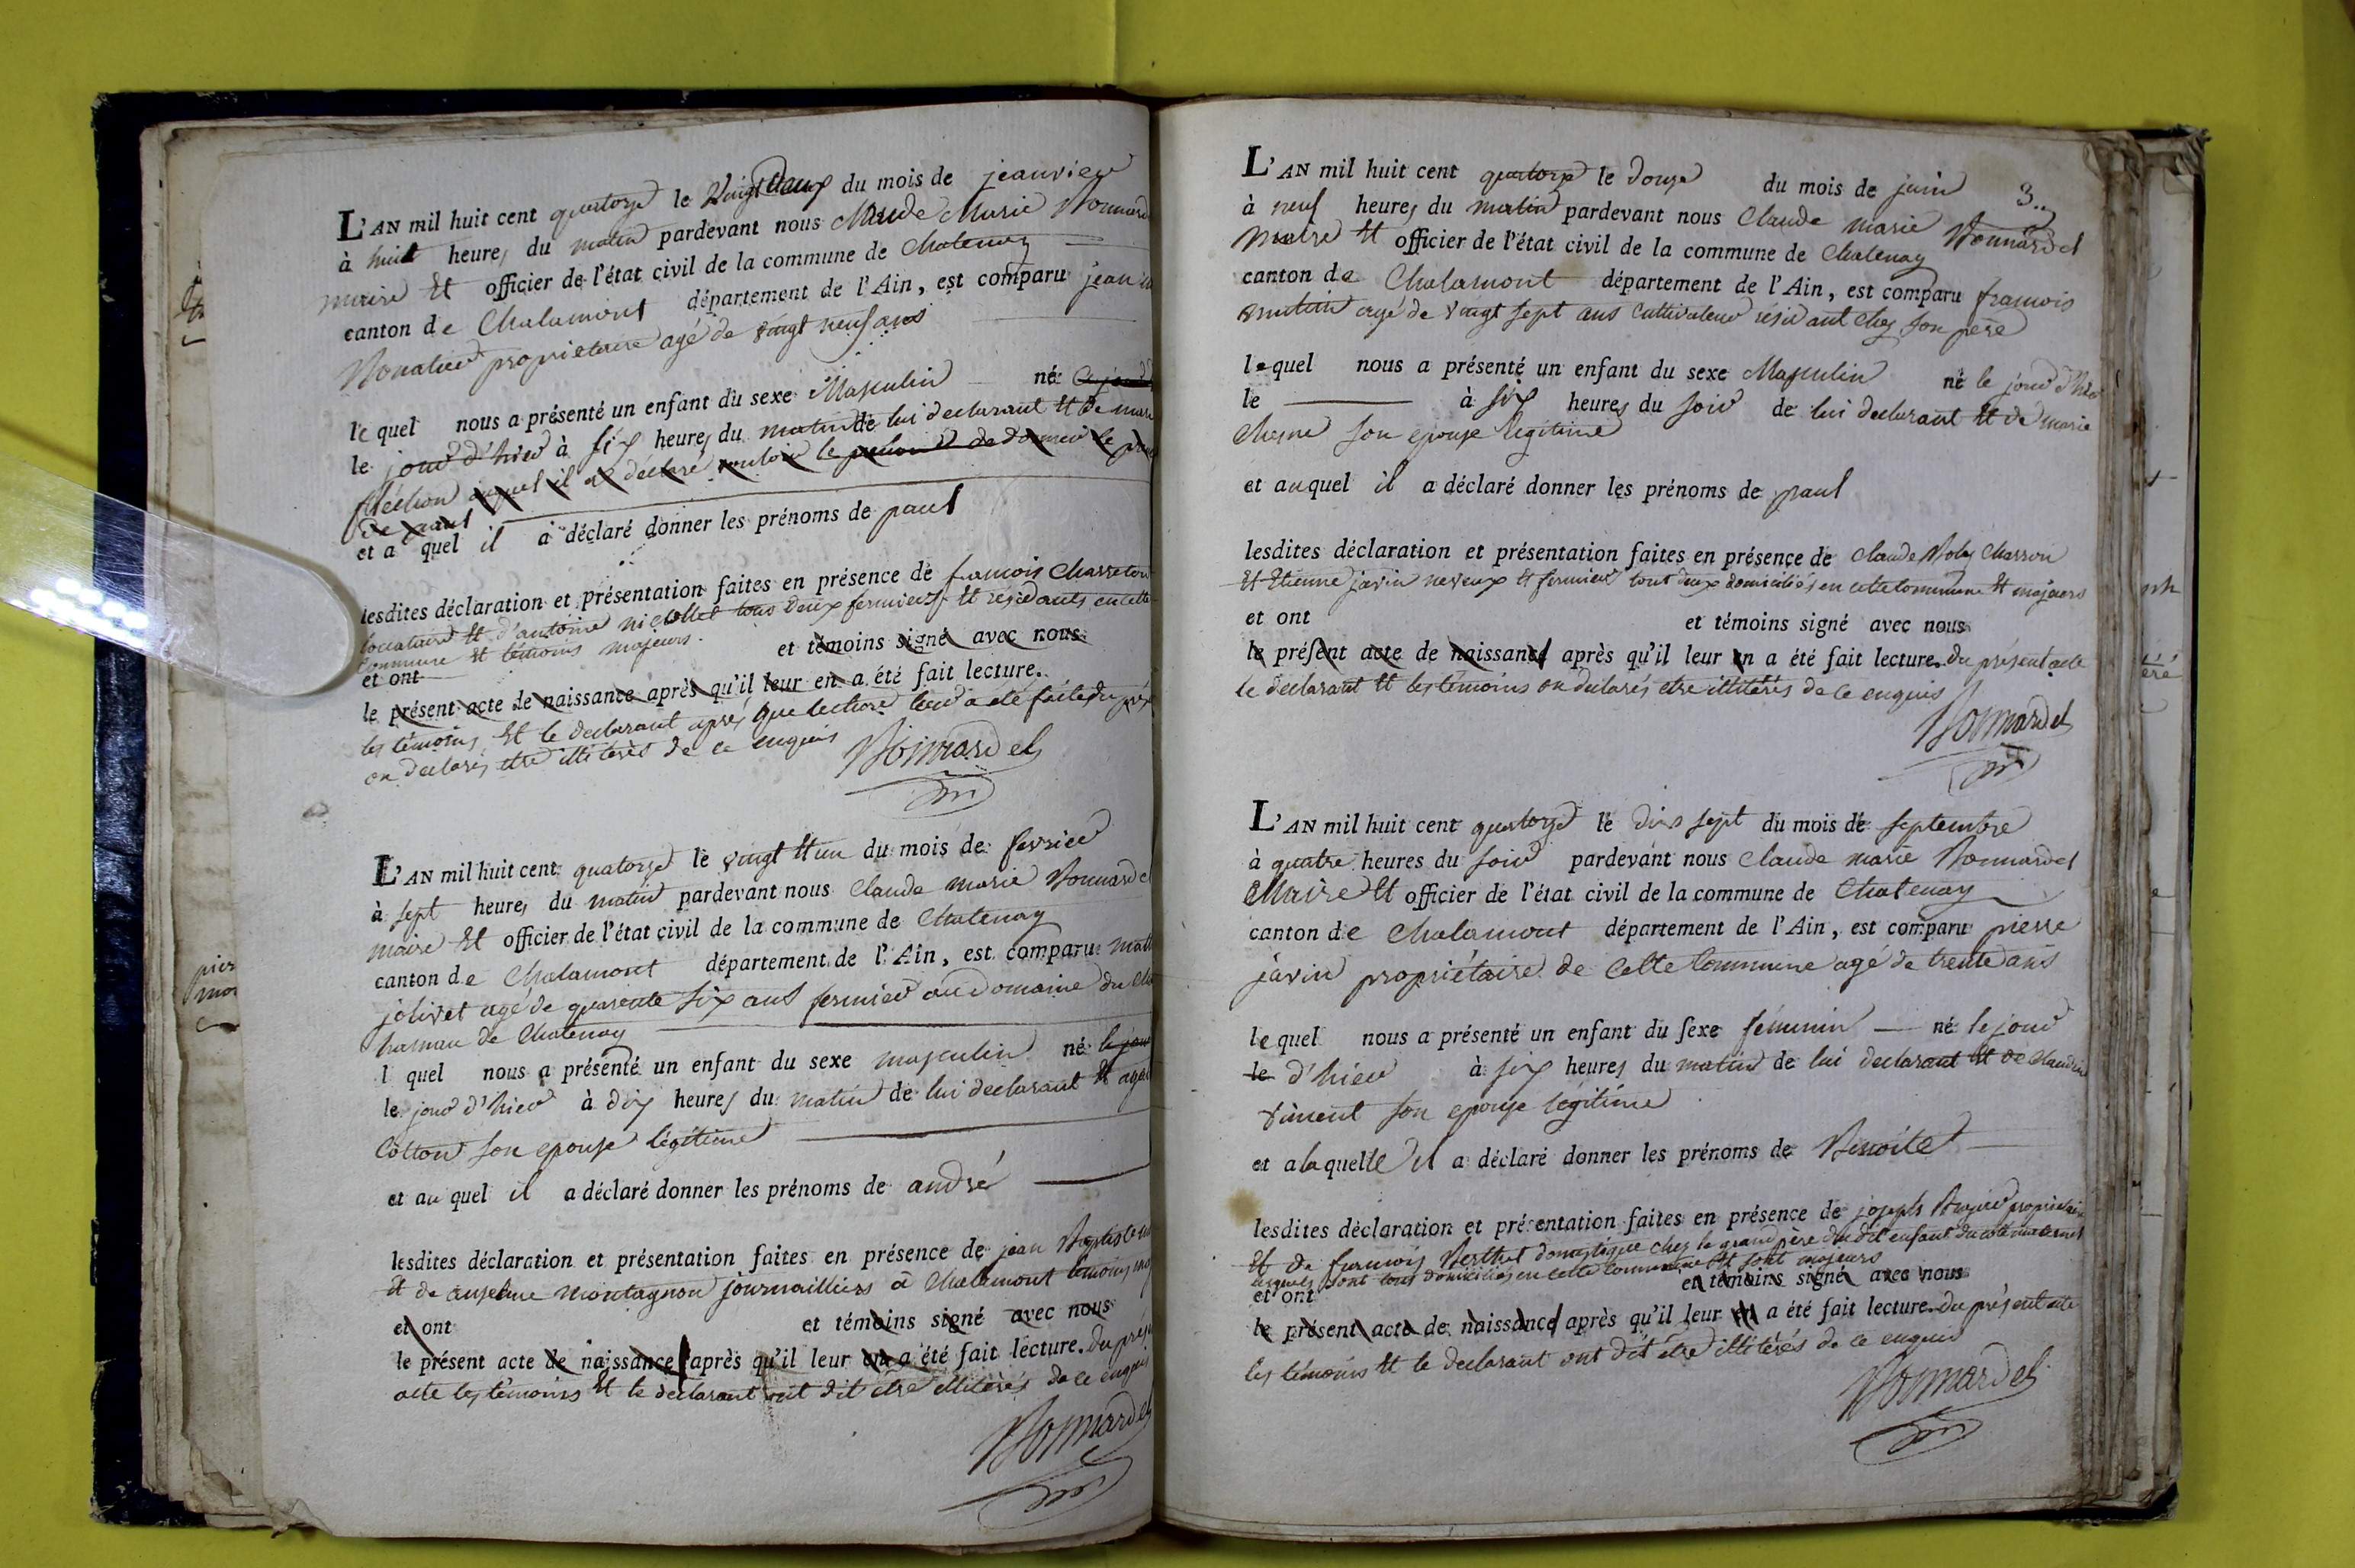 L'AN mil huit cent quatorze le Vingt deux du mois de jeanvier
à huit heures du matin pardevant nous Claude Marie Bonnard
maire Et officier de l'état civil de la commune de Chatenay
canton de Chalamont département de l'Ain, est comparu jean
propriétaire agé de vingt neuf ans
lequel nous a présenté un enfant du sexe Masculin né
le jour d'hier à six heures du matin de lui declarant Et de marie
auquel il a déclaré vouloir le de donner le
de paul
et a quel il a déclaré donner les prénoms de paul
lesdites déclaration et présentation faites en présence de francois Charreton
locataire Et d'antoine nicollet tous deux fermiers Et residants en cette
commune Et témoins majeurs.
et ont et témoins signé avec nous
le présent acte de naissance après qu'il leur en a été fait lecture.
les témoins Et le declarant après que lecture leur a été faite du
on declarés etre illiterés de ce enquis
Bonnardel
L'AN mil huit cent quatorze le vingt Et un du mois de fevrier
à sept heures du matin pardevant nous Claude marie Bonnardel
maire Et officier de l'état civil de la commune de Chatenay
canton de Chalamont département de l'Ain, est comparu
jolivet agé de quarente six ans fermier au Domaine du
hamau de Chatenay
l quel nous a présenté un enfant du sexe masculin né le jour
le jour d'hier à dix heures du matin de lui declarant Et
Cotton son epouse légitime
et au quel il a déclaré donner les prénoms de andré
lesdites déclaration et présentation faites en présence de jean Baptiste
Et de anselme montagnon journailliers à Chalamont témoins
et ont et témoins signé avec nous
le présent acte de naissance après qu'il leur en a été fait lecture. Du
acte les témoins Et le declarant ont dit etre illiterés de ce enquis
Bonnardel
3..
L'AN mil huit cent quatorze le douze du mois de juin
à neuf heures du matin pardevant nous Claude marie Bonnardel
Maire Et officier de l'état civil de la commune de Chatenay
canton de Chalamont département de l'Ain, est comparu francois
agé de vingt sept ans Cultivateur résidant chez son père
lequel nous a présenté un enfant du sexe Masculin né le jour d'hier
le à six heures du soir de lui declarant Et de marie
Chesne son epouse legitime
et auquel il a déclaré donner les prénoms de paul
lesdites déclaration et présentation faites en présence de Claude Charron
Et Etienne javin neveux Et fermier tout deux domiciliés en cette commune Et majeurs
et ont et témoins signé avec nous
le présent acte de naissance après qu'il leur en a été fait lecture. Du présent acte
le declarant Et les témoins on declarés etre illiterés de ce enquis
Bonnardel
L'AN mil huit cent quatorze le dix sept du mois de septembre
à quatre heures du soir pardevant nous Claude marie Bonnardel
Maire Et officier de l'état civil de la commune de Chatenay
canton de Chalamont département de l'Ain, est comparu pierre
javin propriétaire de Cette Commune agé de trente ans
lequel nous a présenté un enfant du sexe féminin né le jour
le d'hier à six heures du matin de lui declarant Et de Claudine
Vincent son epouse légitime
et a laquelle il a déclaré donner les prénoms de Benoite
lesdites déclaration et présentation faites en présence de joseph propriétaire
Et de francois Berthet domestique chez le grand père du dit enfant du coté maternel
lesquels sont tous domiciliés en cette commune Et sont majeurs
et ont et témoins signé avec nous
le présent acte de naissance après qu'il leur en a été fait lecture. Du présent acte
les témoins Et le declarant ont dit etre illiterés de ce enquis
Bonnardel